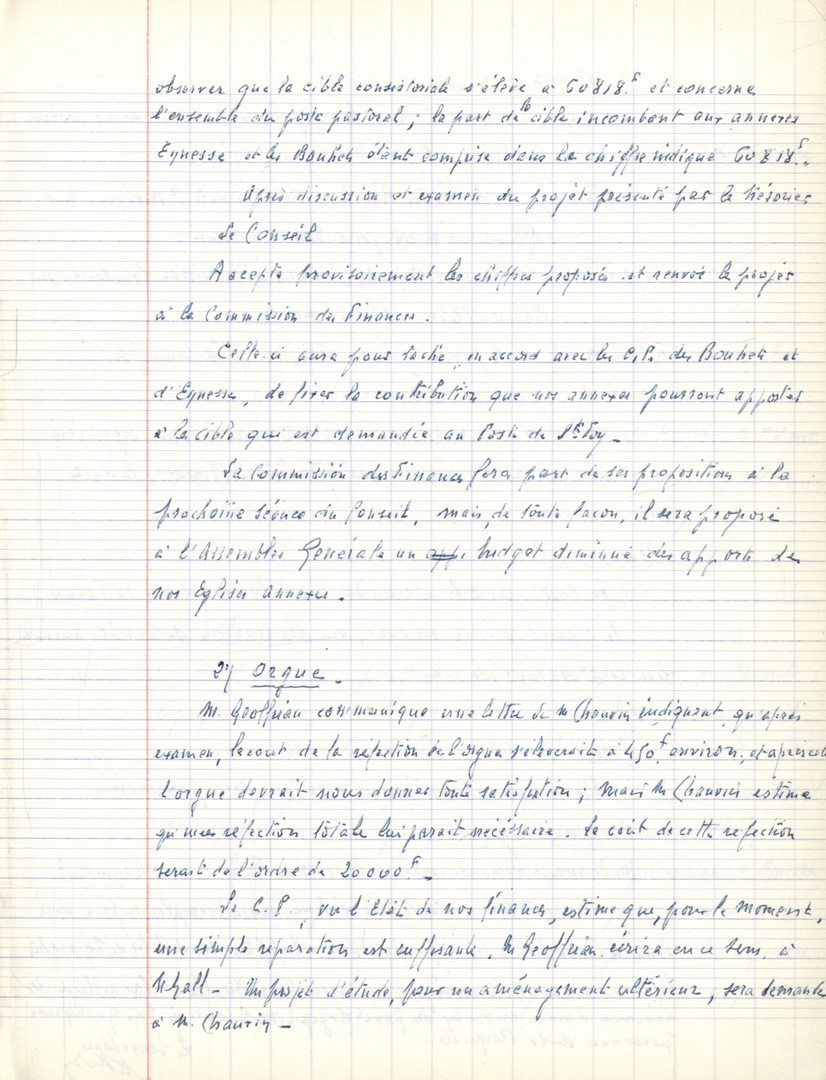 observer que la cible consistoriale s'élève à 60818.F et concerne
l'ensemble du poste pastoral ; la part de la cible incombant aux annexes
Eynesse et les Bouhets étant comprise dans le chiffre indiqué 60818F.
Après discussion et examen du projet présenté par le trésorier
Le Conseil
Accepte provisoirement les chiffres proposés et renvoie le projet
à la Commission des Finances.
Celle-ci aura pour tache, en accord avec les C.P. des Bouhets et
d'Eynesse, de fixer la contribution que nos annexes pourront apporter
à la cible qui est demandée au Poste de Ste Foy -
La Commission des Finances fera part de ses propositions à la
prochaine séance du Conseil, mais, de toute façon, il sera proposé
à l'Assemblée Générale un budget diminué des apports de
nos Eglises annexes.
2°/ Orgue -
M. Geoffrian communique une lettre de M Chauvin indiquant qu'après
examen, le cout de la réfection de l'orgue s'élèverait à 450F environ, et après
l'orgue devrait nous donner toute satisfaction ; mais M Chauvin estime
qu'une réfection totale lui parait nécessaire. Le coût de cette refection
serait de l'ordre de 20000F -
Le C.P, vu l'Etat de nos finances, estime que, pour le moment,
une simple reparation est suffisante. M Geoffrian écrira en ce sens à
- Un projet d'étude, pour un aménagement ultérieur, sera demandé
à M. Chauvin -